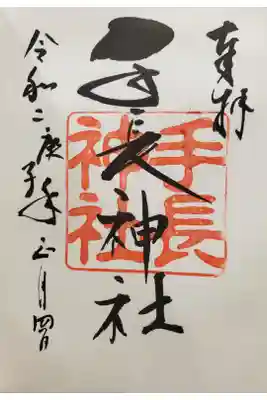 奉拝
手長神社
手長神社
令和二庚子年正月四日